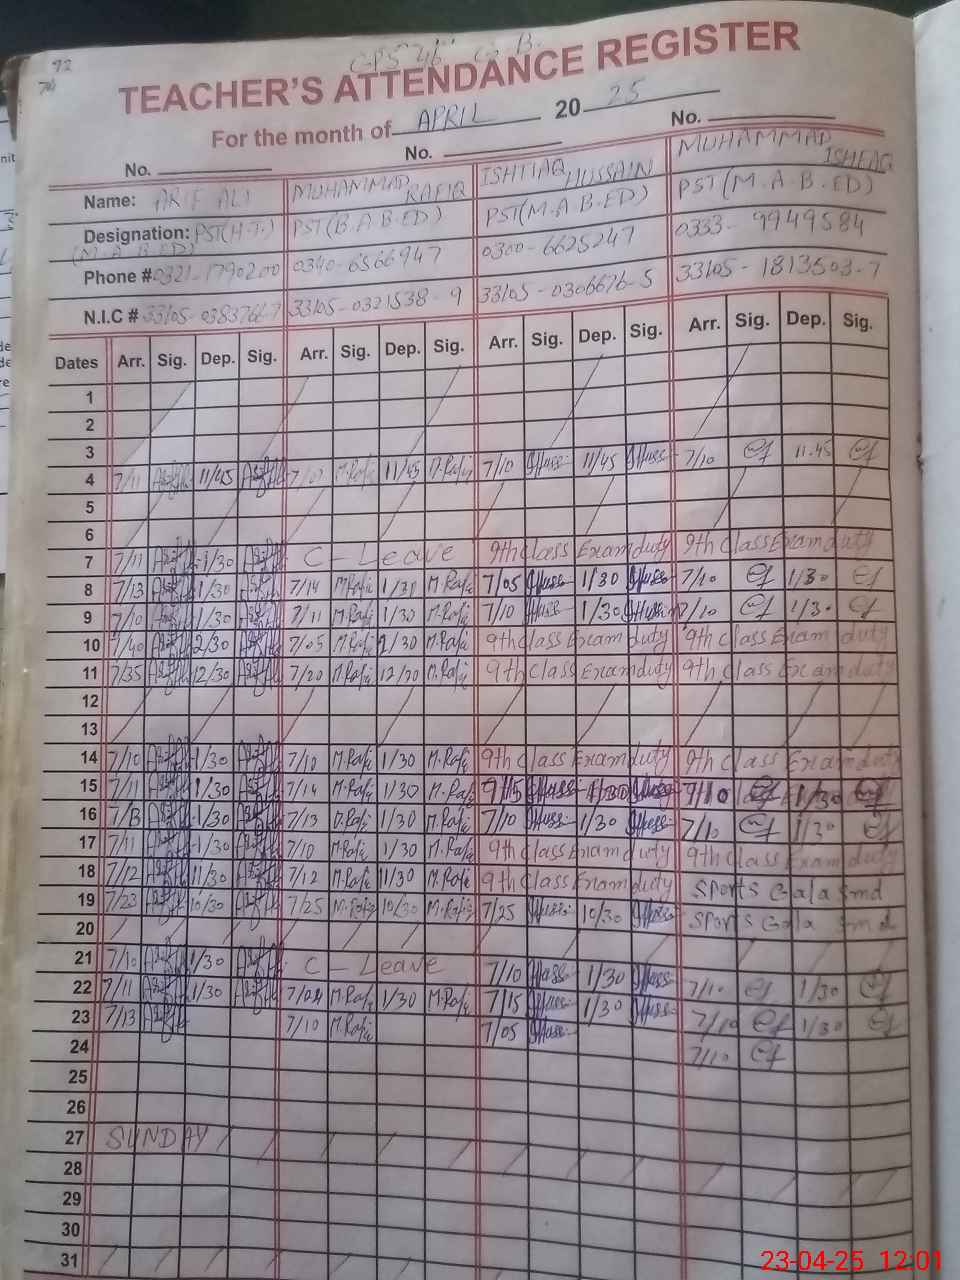 92
TEACHER'S ATTENDANCE REGISTER
For the month of APRIL 20 25
No. No. No.
Name: ARIF ALI MUHAMMAD RAFIQ ISHTIAQ HUSSAIN MUHAMMAD ISHFAQ
Designation: PST(H.T.) (M.A B.ED) PST(B.A B.ED) PST(M.A B.ED) PST(M.A.B.ED)
Phone # 0321-1790200 0340-6566947 0300-6625247 0333-9949584
N.I.C # 33105- 33105-0321538-9 33105-0306676-5 33105-1813503-7
Dates Arr. Sig. Dep. Sig. Arr. Sig. Dep. Sig. Arr. Sig. Dep. Sig. Arr. Sig. Dep. Sig.
1
2
3
4 7/11 11/45 7/07 M.Rafiq 11/45 M.Rafiq 7/10 11/45 7/10 11.45
5
6
7 7/11 1/30 C-Leave 9th Class Exam duty 9th Class Exam duty
8 7/13 1/30 7/14 M.Rafiq 1/30 M.Rafiq 7/05 1/30 7/10 1/30
9 7/10 1/30 7/11 M.Rafiq 1/30 M.Rafiq 7/10 1/30 7/10 1/30
10 7/40 2/30 7/05 M.Rafiq /30 M.Rafiq 9th Class Exam duty 9th Class Exam duty
11 7/35 12/30 7/20 M.Rafiq 12/30 M.Rafiq 9th Class Exam duty 9th Class Exam duty
12
13
14 7/10 1/30 7/12 M.Rafiq 1/30 M.Rafiq 9th Class Exam duty 9th Class Exam duty
15 7/11 1/30 7/14 M.Rafiq 1/30 M.Rafiq 1/30 1/30
16 1/30 7/13 M.Rafiq 1/30 M.Rafiq 7/10 1/30 7/10 1/30
17 7/11 1/30 7/10 M.Rafiq 1/30 M.Rafiq 9th Class Exam duty 9th Class Exam duty
18 7/12 11/30 7/12 M.Rafiq 11/30 M.Rafiq 9th Class Exam duty Sports Gala Smd
19 7/23 10/30 7/25 M.Rafiq 10/30 M.Rafiq 7/25 10/30 Sports Gala Smd
20
21 7/10 1/30 C-Leave 7/10 1/30 7/10 1/30
22 7/11 1/30 M.Rafiq 1/30 M.Rafiq 7/15 1/30 7/10 1/30
23 7/13 7/10 M.Rafiq 7/05 7/10
24
25
26
27 SUNDAY
28
29
30
31
23-04-25 12:01